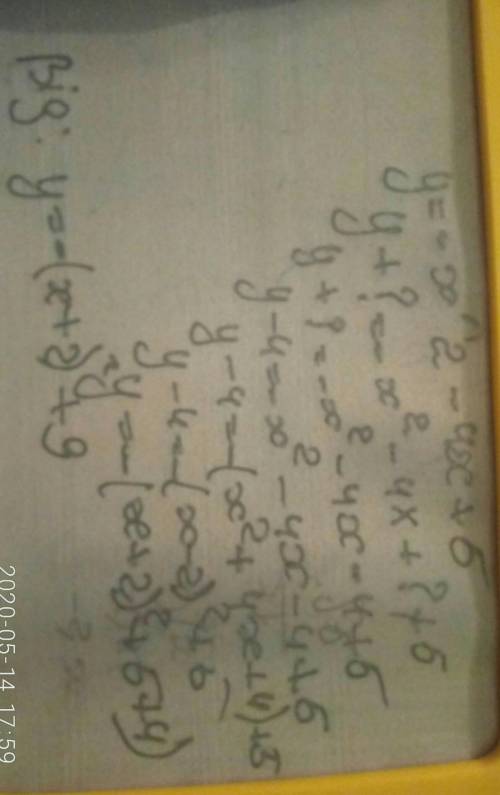 y = -x^2 - 4x + 5
y + ? = -x² - 4x + ? + 5
y + ? = -x² - 4x - 4 + 5
y - 4 = -x² - 4x - 4 + 5
y - 4 = -(x² + 4x + 4) + 5
y - 4 = -(x - 2)² + 5
y = -(x + 2)² + 5 + 4)
Big: y = -(x + 2)² + 9
2020-05-14 17:59